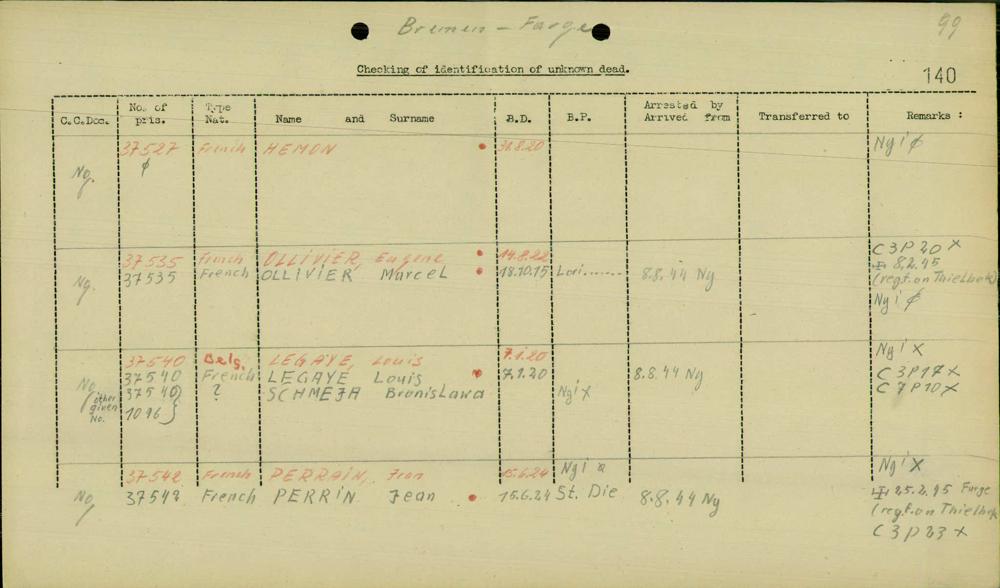 Bremen - Farge
99
Checking of identification of unknown dead.
140
C.C.Doc. No. of pris. Type Nat. Name and Surname B.D. B.P. Arrested by Arrived from Transferred to Remarks :
37527 French HEMON 31.8.20 Ng i ϕ
Ng. ϕ
37535 French OLLIVIER, Eugene 14.8.22 C3P20 X
Ng. 37535 French OLLIVIER Marcel 18.10.15 Lori........ 8.8.44 Ng 8.2.45
(regt.on Thielbek)
Ng i ϕ
37540 Belg. LEGAYE, Louis 7.1.20 Ng i X
Ng. 37540 French LEGAYE Louis 7.1.20 8.8.44 Ng C3P17 X
other given No. 37540 ? SCHMEJA Bronislawa Ng i X C7P10 X
1096 }
37542 French PERRAIN, Jean 15.6.24 Ng i Ng i X
Ng 37542 French PERRIN Jean 15.6.24 St. Die 8.8.44 Ng 25.2.45 Farge
(regt.on Thielbek
C3P23 X